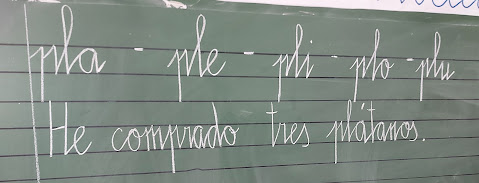 pla - ple - pli - plo - plu
He comprado tres plátanos.